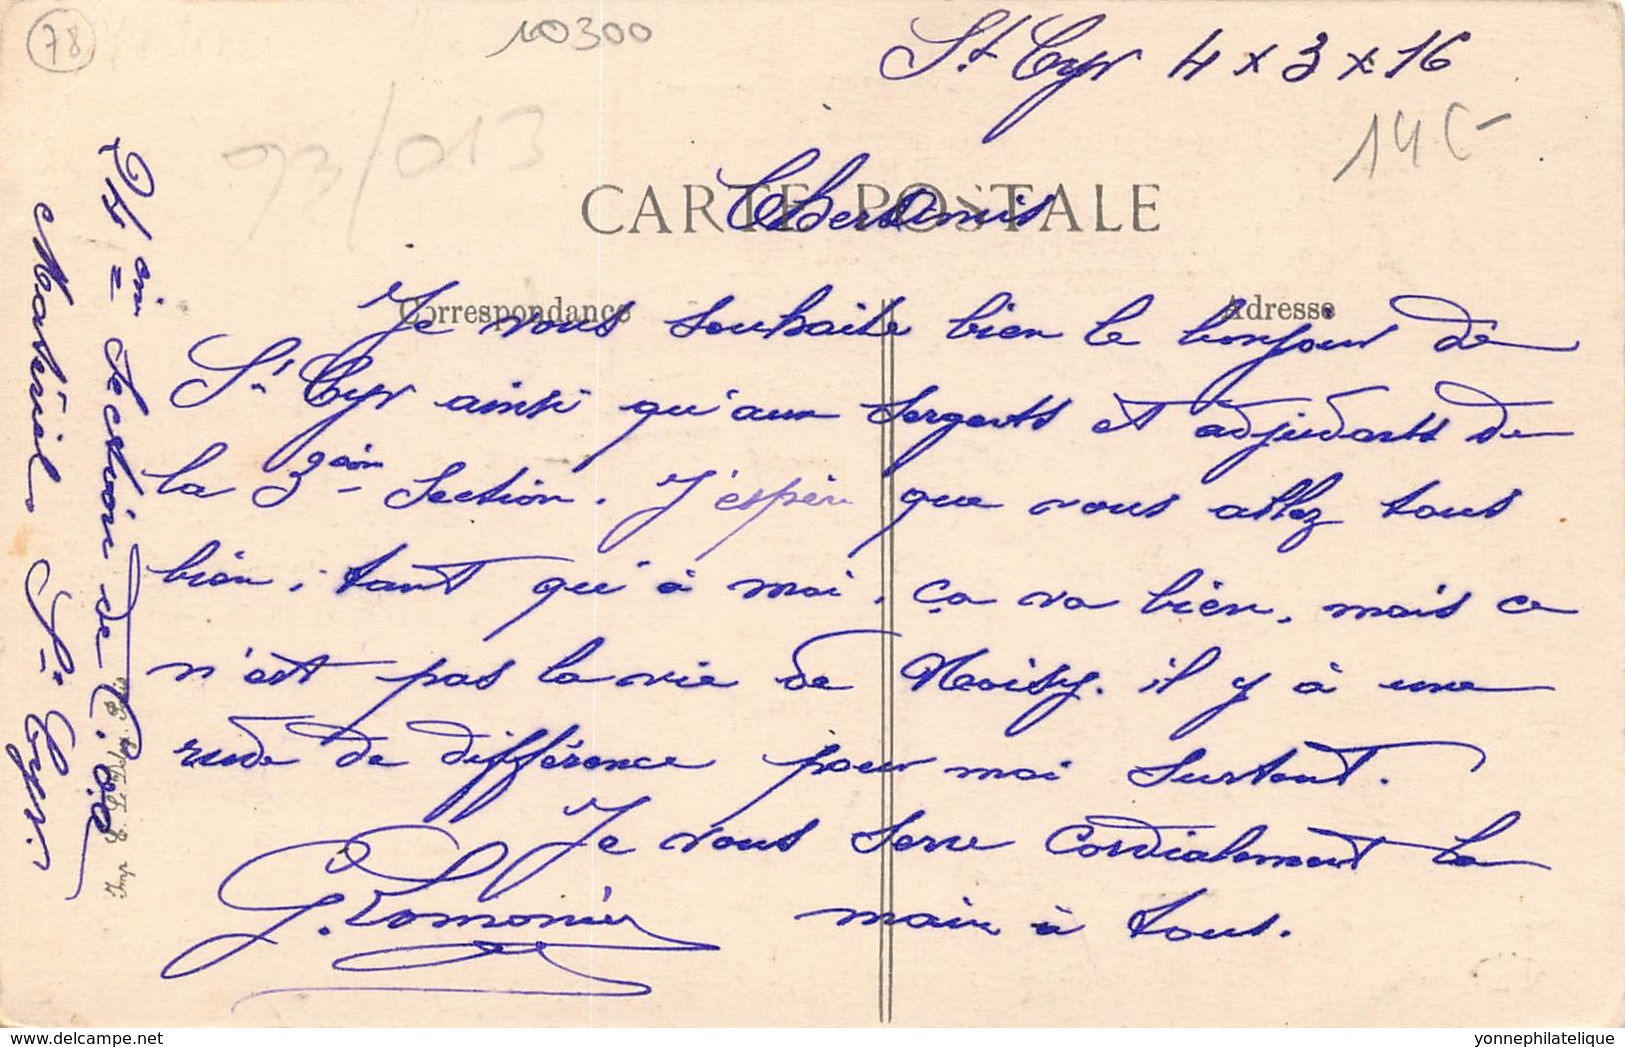 78
10300
St Cyr 4 x 3 x 16
14 €
93/013
CARTE POSTALE
Chers Amis
Correspondance
Adresse
Je vous souhaite bien le bonjour de
St Cyr ainsi qu'aux sergents et adjudants de
la 3ème Section. J'espère que vous allez tous
bien, tant qu'à moi, ça va bien, mais ce
n'est pas la vie de Noisy. il y à une
rude de différence pour moi surtout.
Je vous serre cordialement la
main à tous.
G. Lomonier
Section de
Matériel St Cyr.
Imp. E. L. D.
delcampe.net
yonnephilatelique